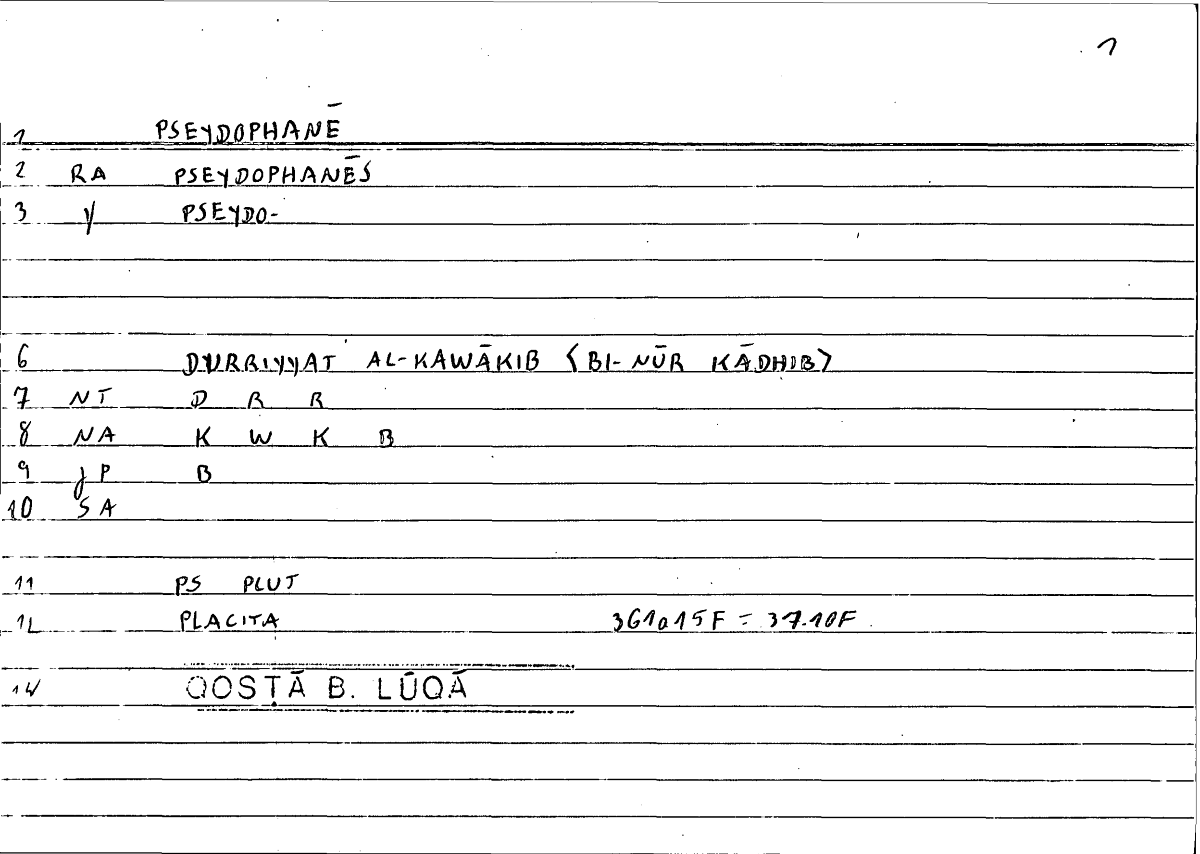 1
1 PSEYDOPHANĒ
2 RA PSEYDOPHANĒS
3 γ PSEYDO-
6 DURRIYYAT AL-KAWĀKIB <BI-NŪR KĀDHIB>
7 NT D R R
8 NA K W K B
9 JP B
10 SA
11 PS PLUT
12 PLACITA 361a15F = 37.10F
14 QOSṬĀ B. LŪQĀ